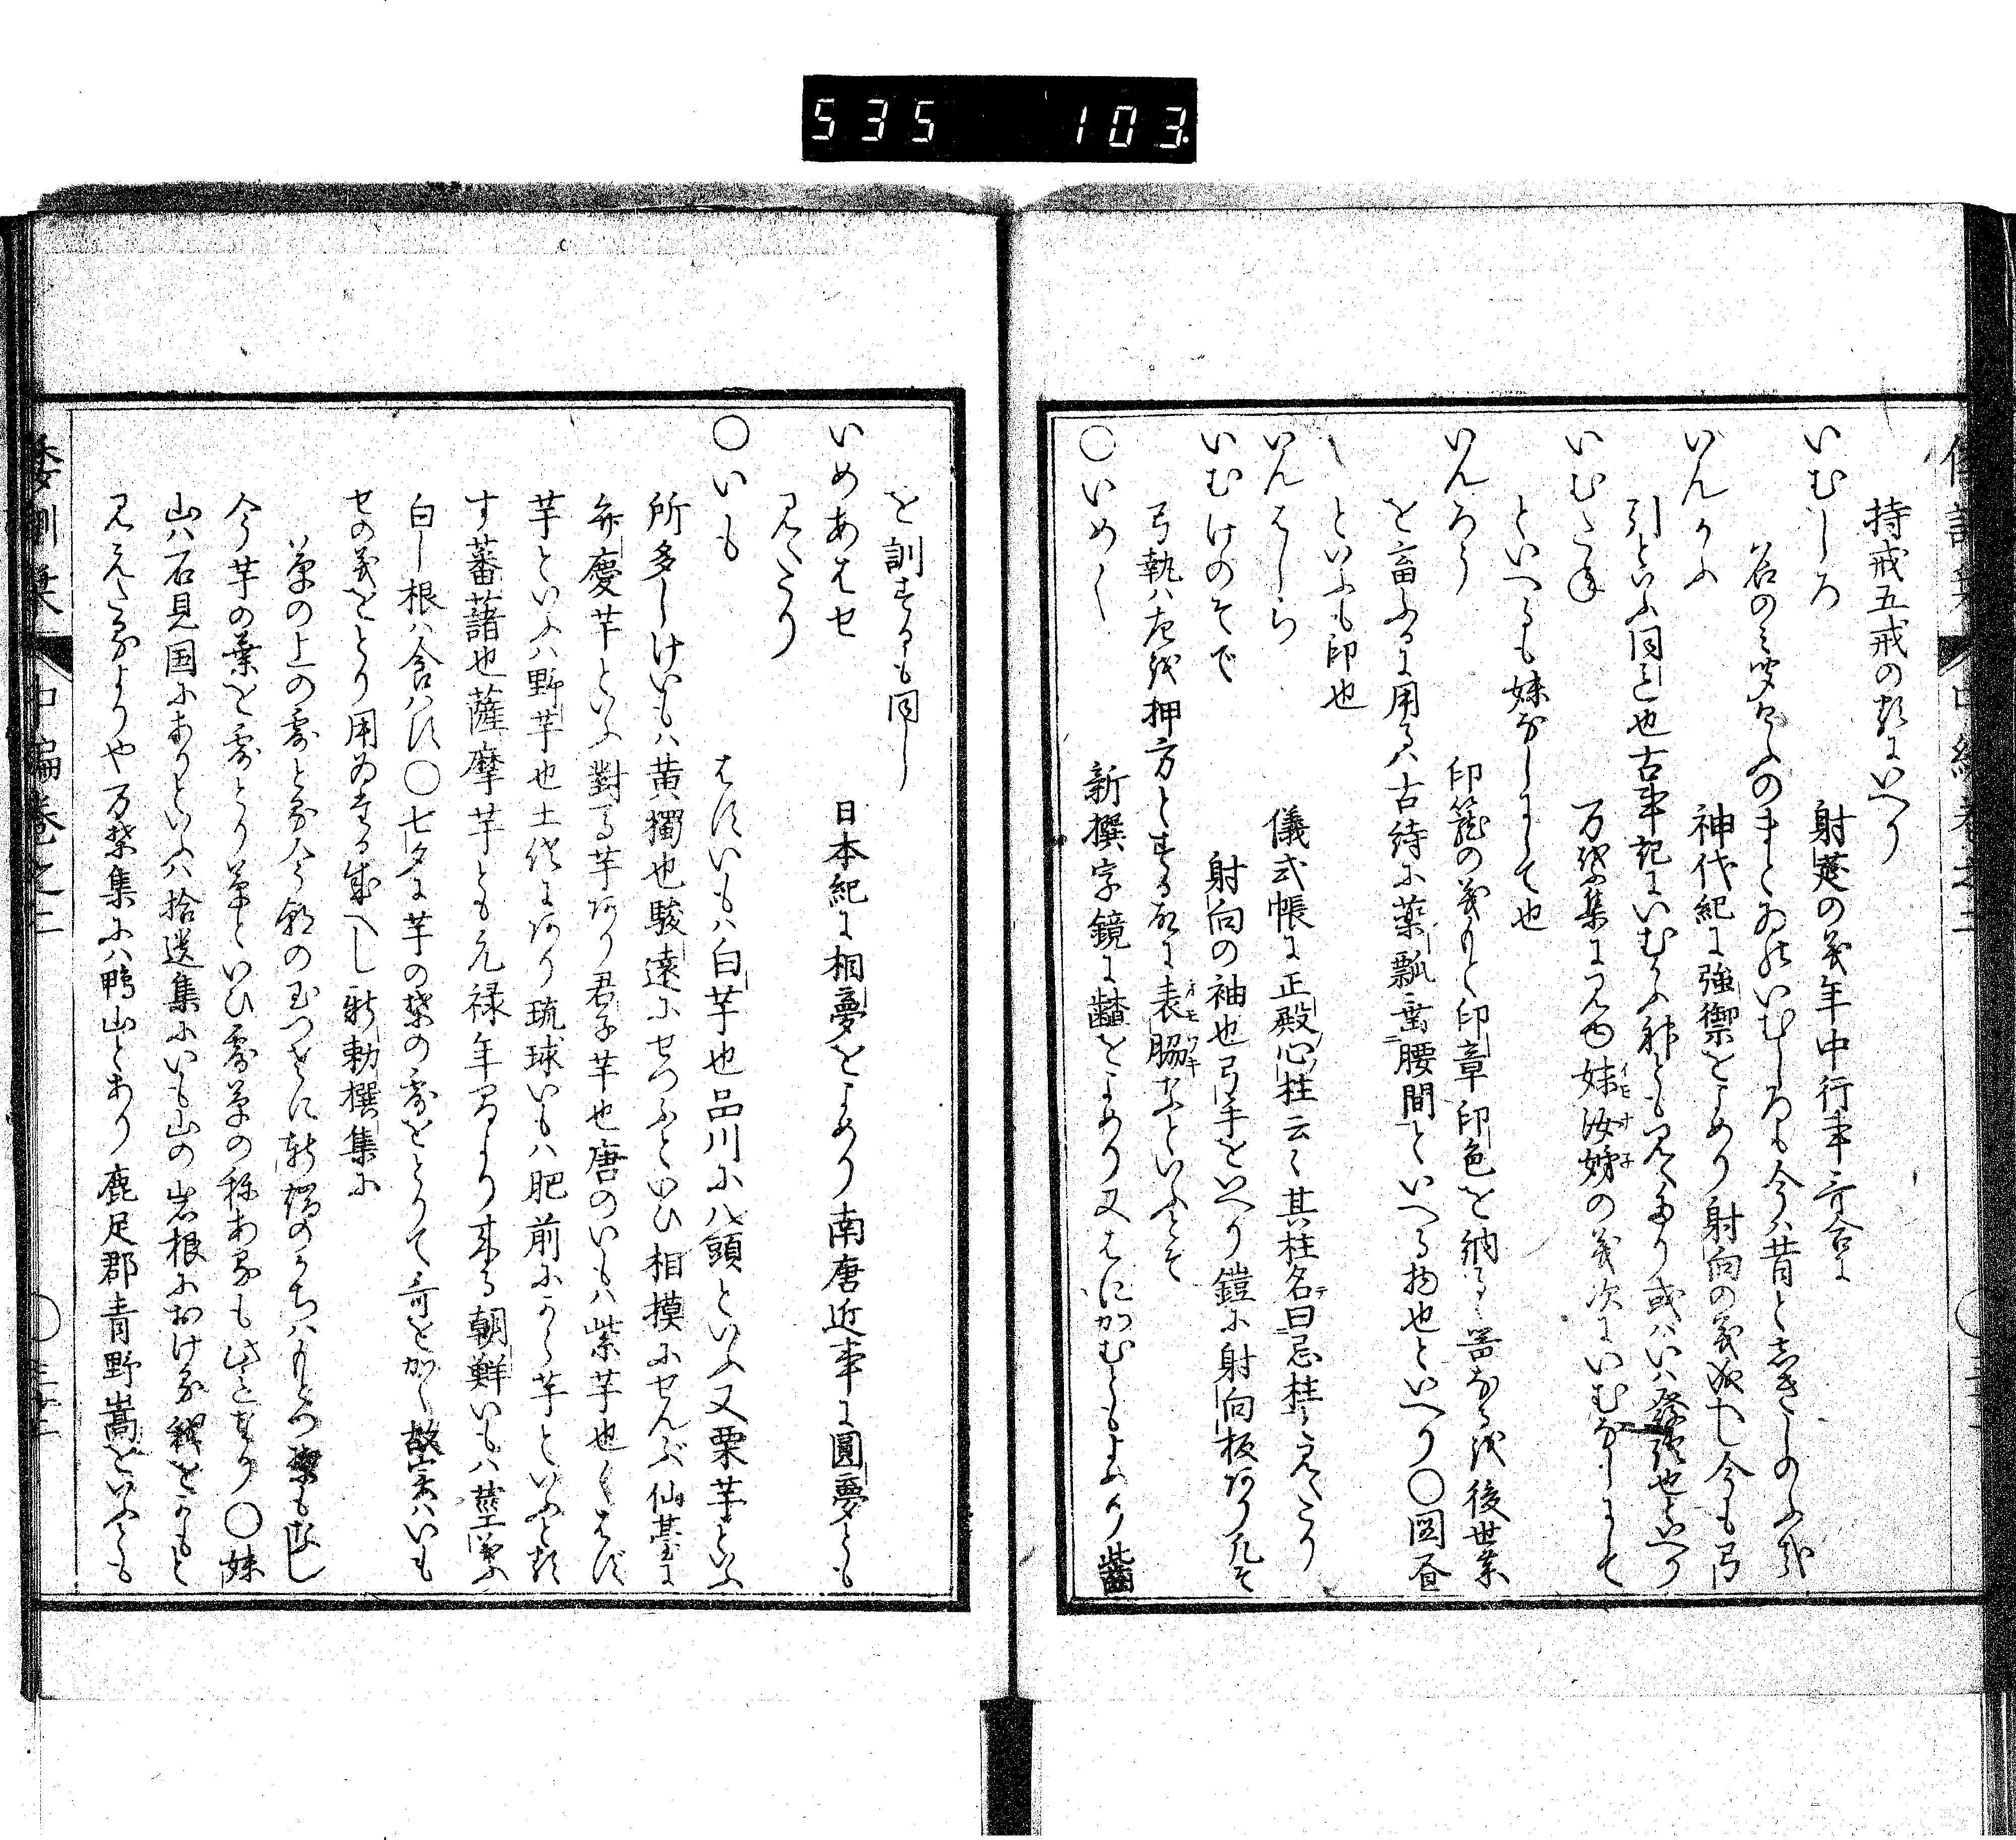 535 103
持戒五戒の類にいへり
いむしろ 射莚の義年中行事哥合に
いんかふ 神代紀に強禦をよめり射向の義成へし今も弓
引といふ同し也古事記にいむかふ神とも見えたり
いむなね 万葉集に見ゆ妹汝姉の義次にいむなしにして
といへるも妹なしにして也
いんろう 印籠の義もと印章印色を納るゝ器なるを後世薬
を畜ふるに用るハ古詩に薬瓢垂腰間といへる物也といへり〇図書
といふも印也
いんはしら 儀式帳に正殿心柱云々其柱名曰忌柱と見えたり
いむけのそで 射向の袖也弓手をいへり鎧に射向板あり凡そ
弓執ハ左を押方とする故に表脇なといふとそ
〇いめく 新撰字鏡に齰をよめり又はにかむともよめり
を訓するも同し
いめあはせ 日本紀に相夢をよめり南唐近事に圓夢とも
見えたり
〇いも はすいもハ白芋也品川に八頭といふ又栗芋といふ
所多しけいもハ黄獨也駿遠にせつふといひ相摸にせんぶ仙臺に
弁慶芋といふ對る芋あり君子芋也唐のいもハ紫芋也くはず
芋といふハ野芋也土佐にあり琉球いもハ肥前にから芋といふと類
す蕃藷也薩摩芋とも元禄年間より来る朝鮮いもハ莖葉
白し根ハ食ハす〇七夕に芋の葉の露をとりて哥をかく故実ハいも
せの義をとり用ゐたる成へし新勅撰集に
草の上の露とる今朝の玉つさに軒端のかちハもとつ葉もなし
今芋の葉を露とり草といひ露草の称あるも此こと也〇妹
山ハ石見国にありといふハ拾遺集にいも山の岩根における我をかもと
見えたるよりや万葉集にハ鴨山とあり鹿足郡青野嵩をいふとも
倭訓栞 中編巻之二